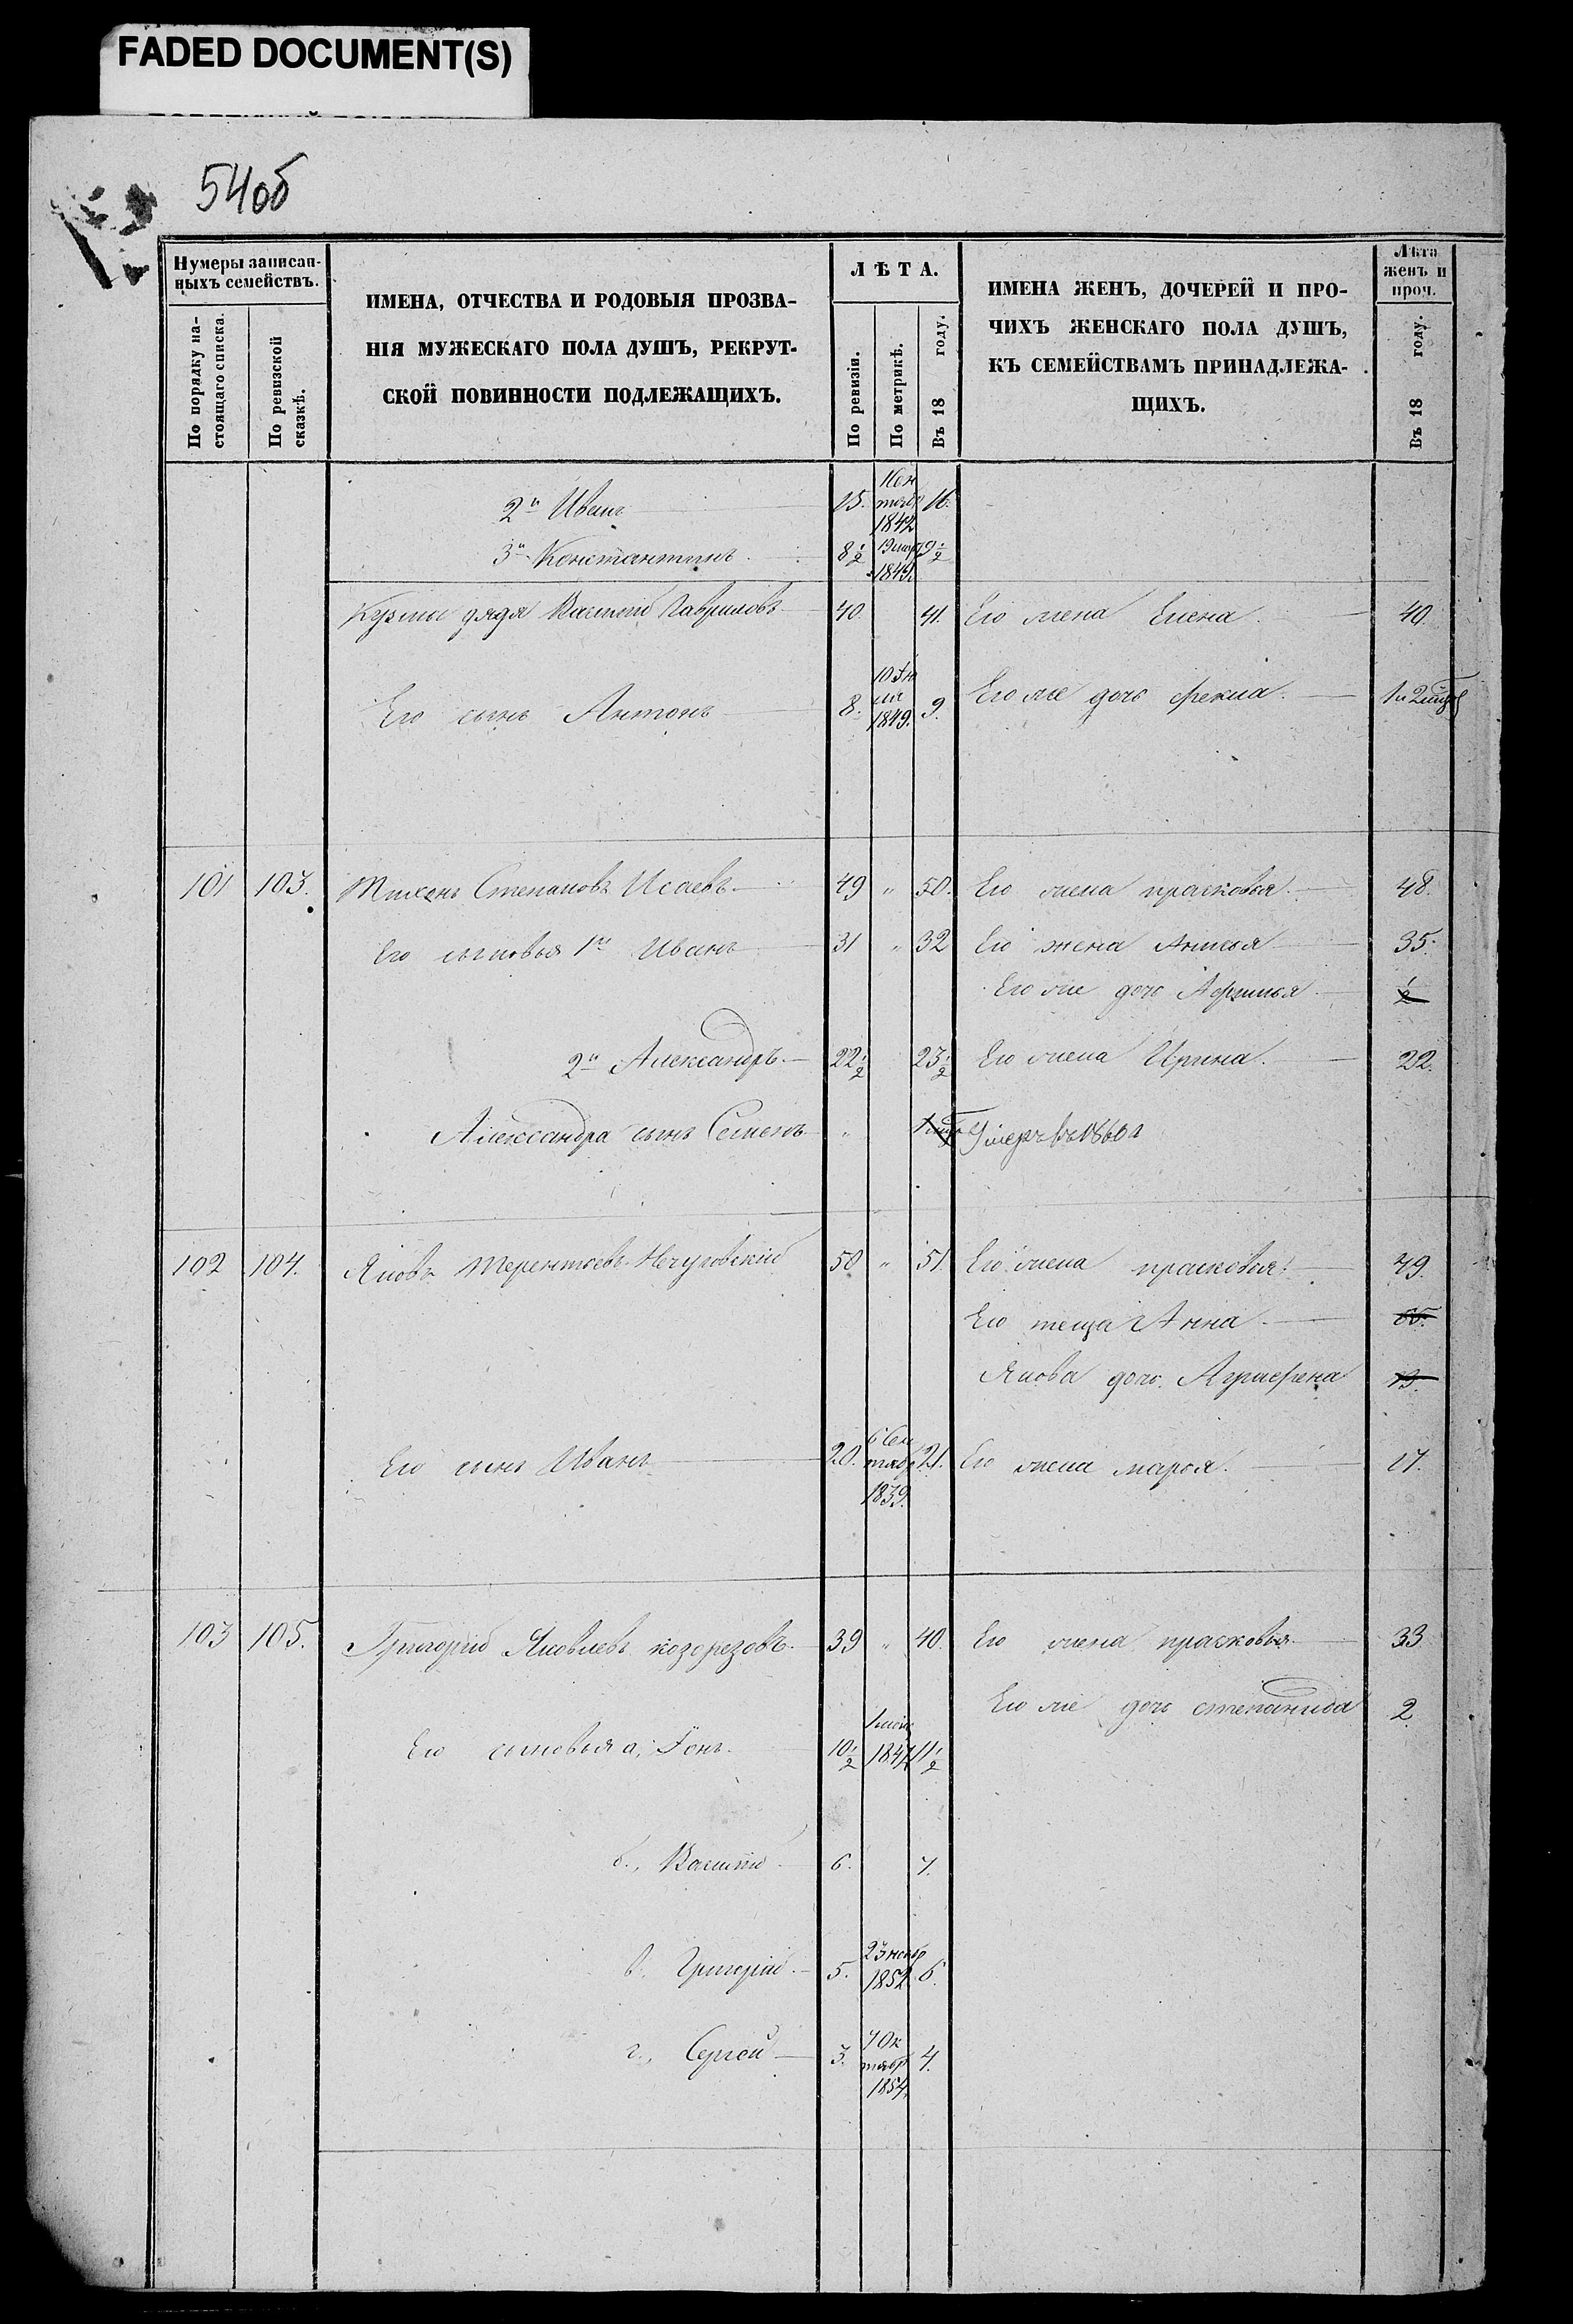 FADED DOCUMENT(S)
54об
Нумеры записан-
ныхъ семействъ.
По порядку на-
стоящаго списка.
По ревизской
сказкѣ.
ИМЕНА, ОТЧЕСТВА И РОДОВЫЯ ПРОЗВА-
НІЯ МУЖЕСКАГО ПОЛА ДУШЪ, РЕКРУТ-
СКОЙ ПОВИННОСТИ ПОДЛЕЖАЩИХЪ.
ЛѢТА.
По ревизіи.
По метрикѣ.
Въ 18 году.
ИМЕНА ЖЕНЪ, ДОЧЕРЕЙ И ПРО-
ЧИХЪ ЖЕНСКАГО ПОЛА ДУШЪ,
КЪ СЕМЕЙСТВАМЪ ПРИНАДЛЕЖА-
ЩИХЪ.
Лѣта
женъ и
проч.
Въ 18 году.
2й Иванъ 15. 1842 16.
3й Константинъ 8½ 1849. 9½
Кузмы дядя Василій Гавриловъ 40. 41. Его жена Елена 40.
Его сынъ Антонъ 8. 10 1849. 9. Его же дочь Фекла
101 103. Тихонъ Степановъ Исаевъ 49 " 50. Его жена прасковья 48.
Его сыновья 1й Иванъ 31 " 32 Его жена 35.
Его же дочь ½
2й Александръ 22½ 23½ Его жена Ирина. 22.
Александра сынъ Семенъ " Умеръ въ 1860 г
102 104. Яковъ Терентьевъ 50 " 51. Его жена прасковья 49.
Его теща Анна
Якова дочь Аграфена
Его сынъ Иванъ 20. 6 Сен
тябр 1839. 21. Его жена марья. 17.
103 105. Григорій Яковлевъ козорезовъ 39 " 40. Его жена прасковья 33
Его же дочь степанида 2.
Его сыновья а, 10½ 1847 11½
б., Василій 6. 7.
в., Григорій 5. 23 ноябр
1852 6.
г., Сергей 3. 7 Ок
тябр
1854. 4.